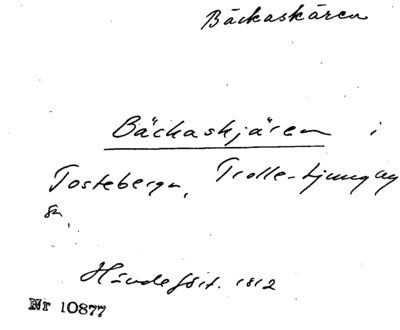 Bäckaskären
Bäckaskjären i
Tosteberga, Trolle-Ljungby
sn,
Händelsit. 1812
Nr 10877